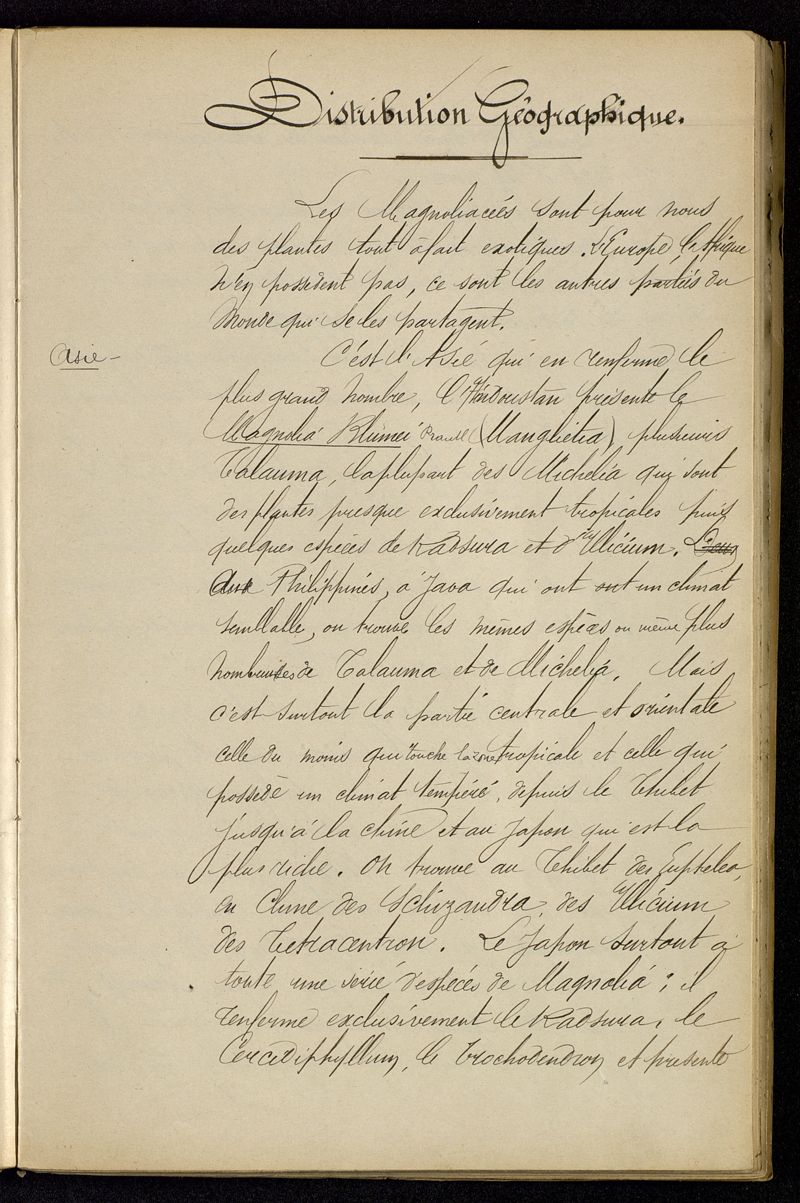 Distribution Géographique.
Les Magnoliaceés sont pour nous
des plantes tout àfait exotiques. L'Europe, l'Afrique
n'en possedent pas, ce sont les autres parties du
Monde qui se les partagent.
Asie -
C'est l'Asie qui en renferme le
plus grand nombre, l'Indoustan présente le
Magnolia Prantl (Manglietia), plusieurs
Talauma, la plupart des Michelia qui sont
des plantes presque exclusivement tropicales puis
quelques espèces de Kadsura et d'Illicium.
Aux Philippines, à Java qui ont un climat
semblable, on trouve les mêmes espèces ou même plus
nombreuses de Talauma et de Michelia. Mais
c'est surtout la partie centrale et orientale
celle du moins qui touche la zone tropicale et celle qui
possède un climat tempéré, depuis le Thibet
jusqu'à la chine et au Japon qui est la
plus riche. On trouve au Thibet des Euptelea,
en Chine des Schizandra, des Illicium
des Tetracentron. Le Japon surtout a
toute une serie d'espèces de Magnolia ; il
renferme exclusivement le Kadsura, le
Cercidiphyllum, le Trochodendron et presente